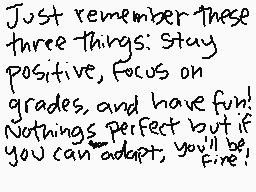 Just remember these
three things: Stay
positive, focus on
grades, and have fun!
Nothings perfect but if
you can adapt, you'll be
fine!